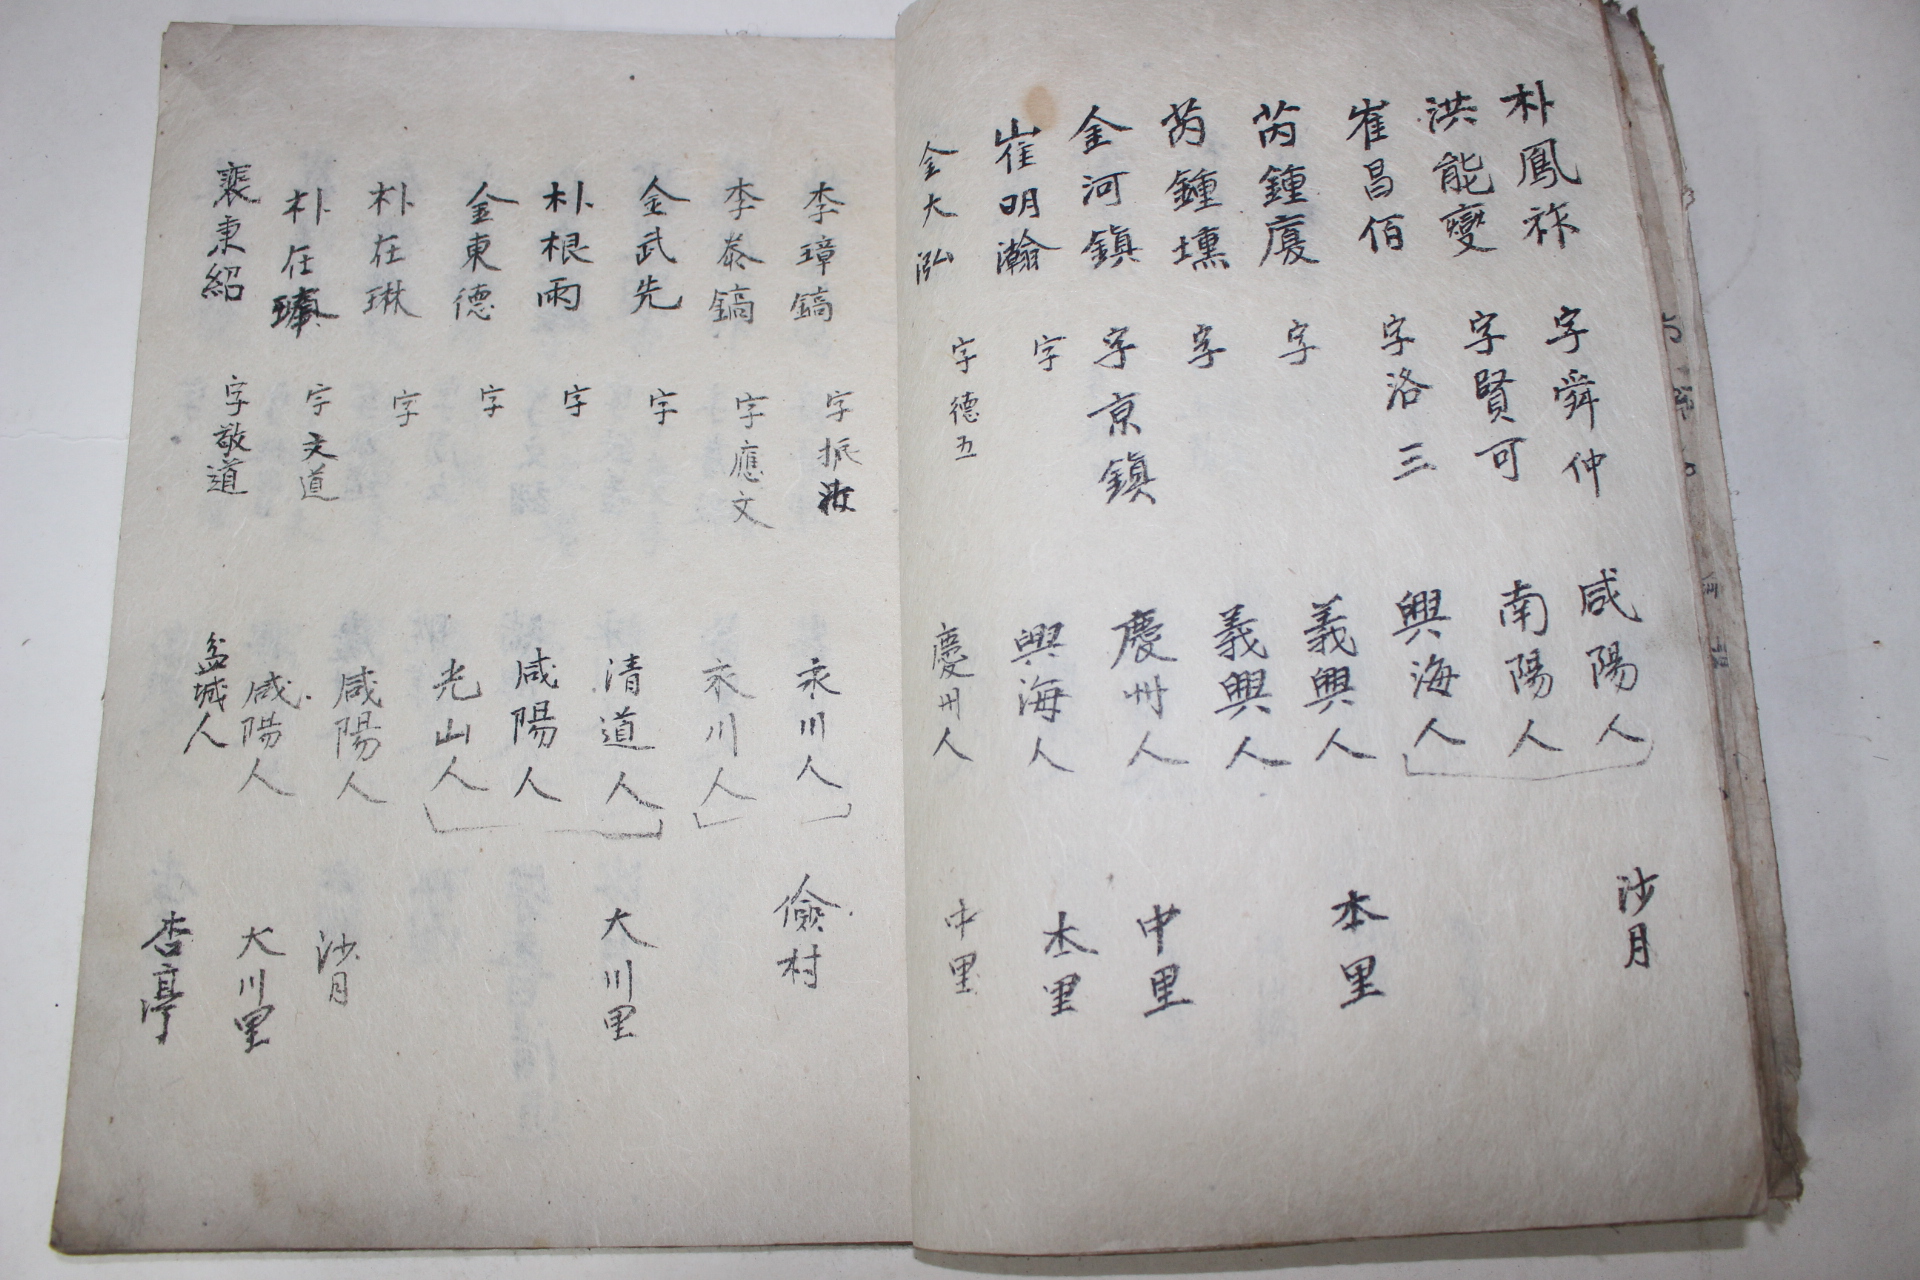 朴鳳祚 字舜仲 咸陽人 沙月
洪能變 字賢可 南陽人
崔昌佰 字洛三 興海人
芮鍾廈 字 義興人 本里
芮鍾壎 字 義興人
金河鎭 字京鎭 慶州人 中里
崔明瀚 字 興海人 本里
金大泓 字德五 慶州人 中里
李璋鎬 字振汝 永川人 儉村
李泰鎬 字應文 永川人
金武先 字 清道人 大川里
朴根雨 字 咸陽人
金東德 字 光山人
朴在琳 字 咸陽人 沙月
朴在 字文道 咸陽人 大川里
裴東紹 字敬道 盆城人 杏亭